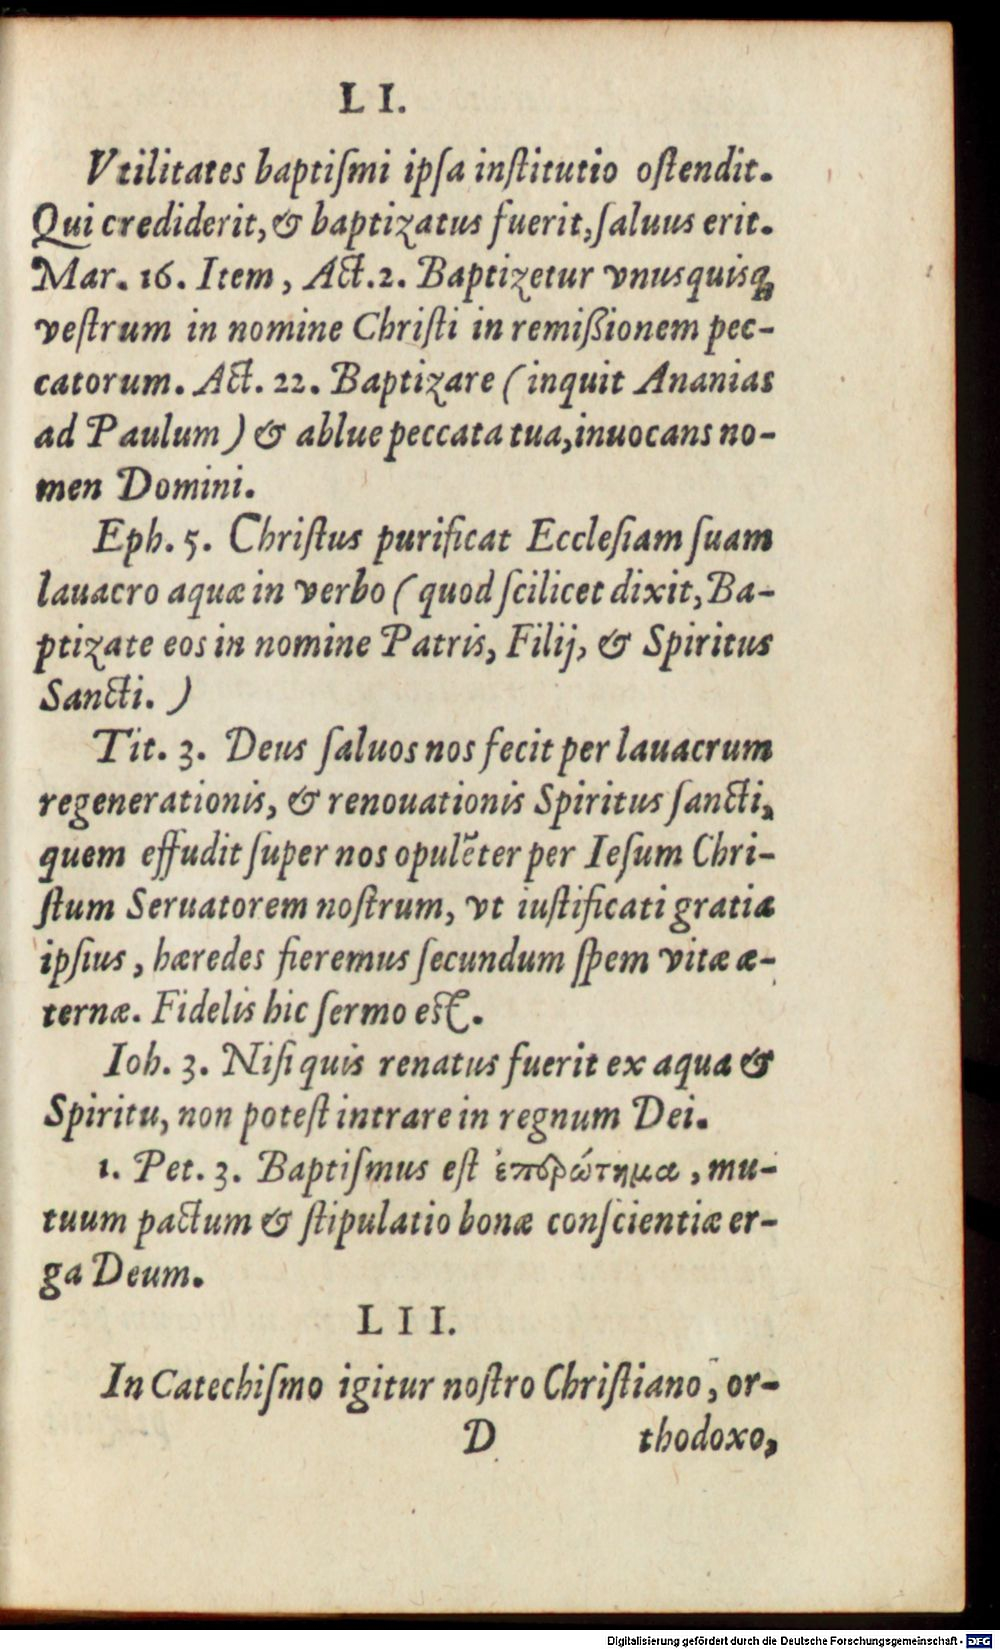 LI.
Vtilitates baptiſmi ipſa inſtitutio oſtendit.
Qui crediderit, & baptizatus fuerit, ſaluus erit.
Mar. 16. Item, Act. 2. Baptizetur vnusquisq;
veſtrum in nomine Chriſti in remißionem pec-
catorum. Act. 22. Baptizare (inquit Ananias
ad Paulum) & ablue peccata tua, inuocans no-
men Domini.
Eph. 5. Chriſtus purificat Eccleſiam ſuam
lauacro aquæ in verbo (quod ſcilicet dixit, Ba-
ptizate eos in nomine Patris, Filij, & Spiritus
Sancti.)
Tit. 3. Deus ſaluos nos fecit per lauacrum
regenerationis, & renouationis Spiritus ſancti,
quem effudit ſuper nos opulēter per Ieſum Chri-
ſtum Seruatorem noſtrum, vt iuſtificati gratia
ipſius, hæredes fieremus ſecundum ſpem vitæ æ-
ternæ. Fidelis hic ſermo eſt.
Ioh. 3. Niſi quis renatus fuerit ex aqua &
Spiritu, non poteſt intrare in regnum Dei.
1. Pet. 3. Baptiſmus eſt ἐπερώτημα, mu-
tuum pactum & ſtipulatio bonæ conſcientiæ er-
ga Deum.
LII.
In Catechiſmo igitur noſtro Chriſtiano, or-
D thodoxo,
Digitalisierung gefördert durch die Deutsche Forschungsgemeinschaft - DFG